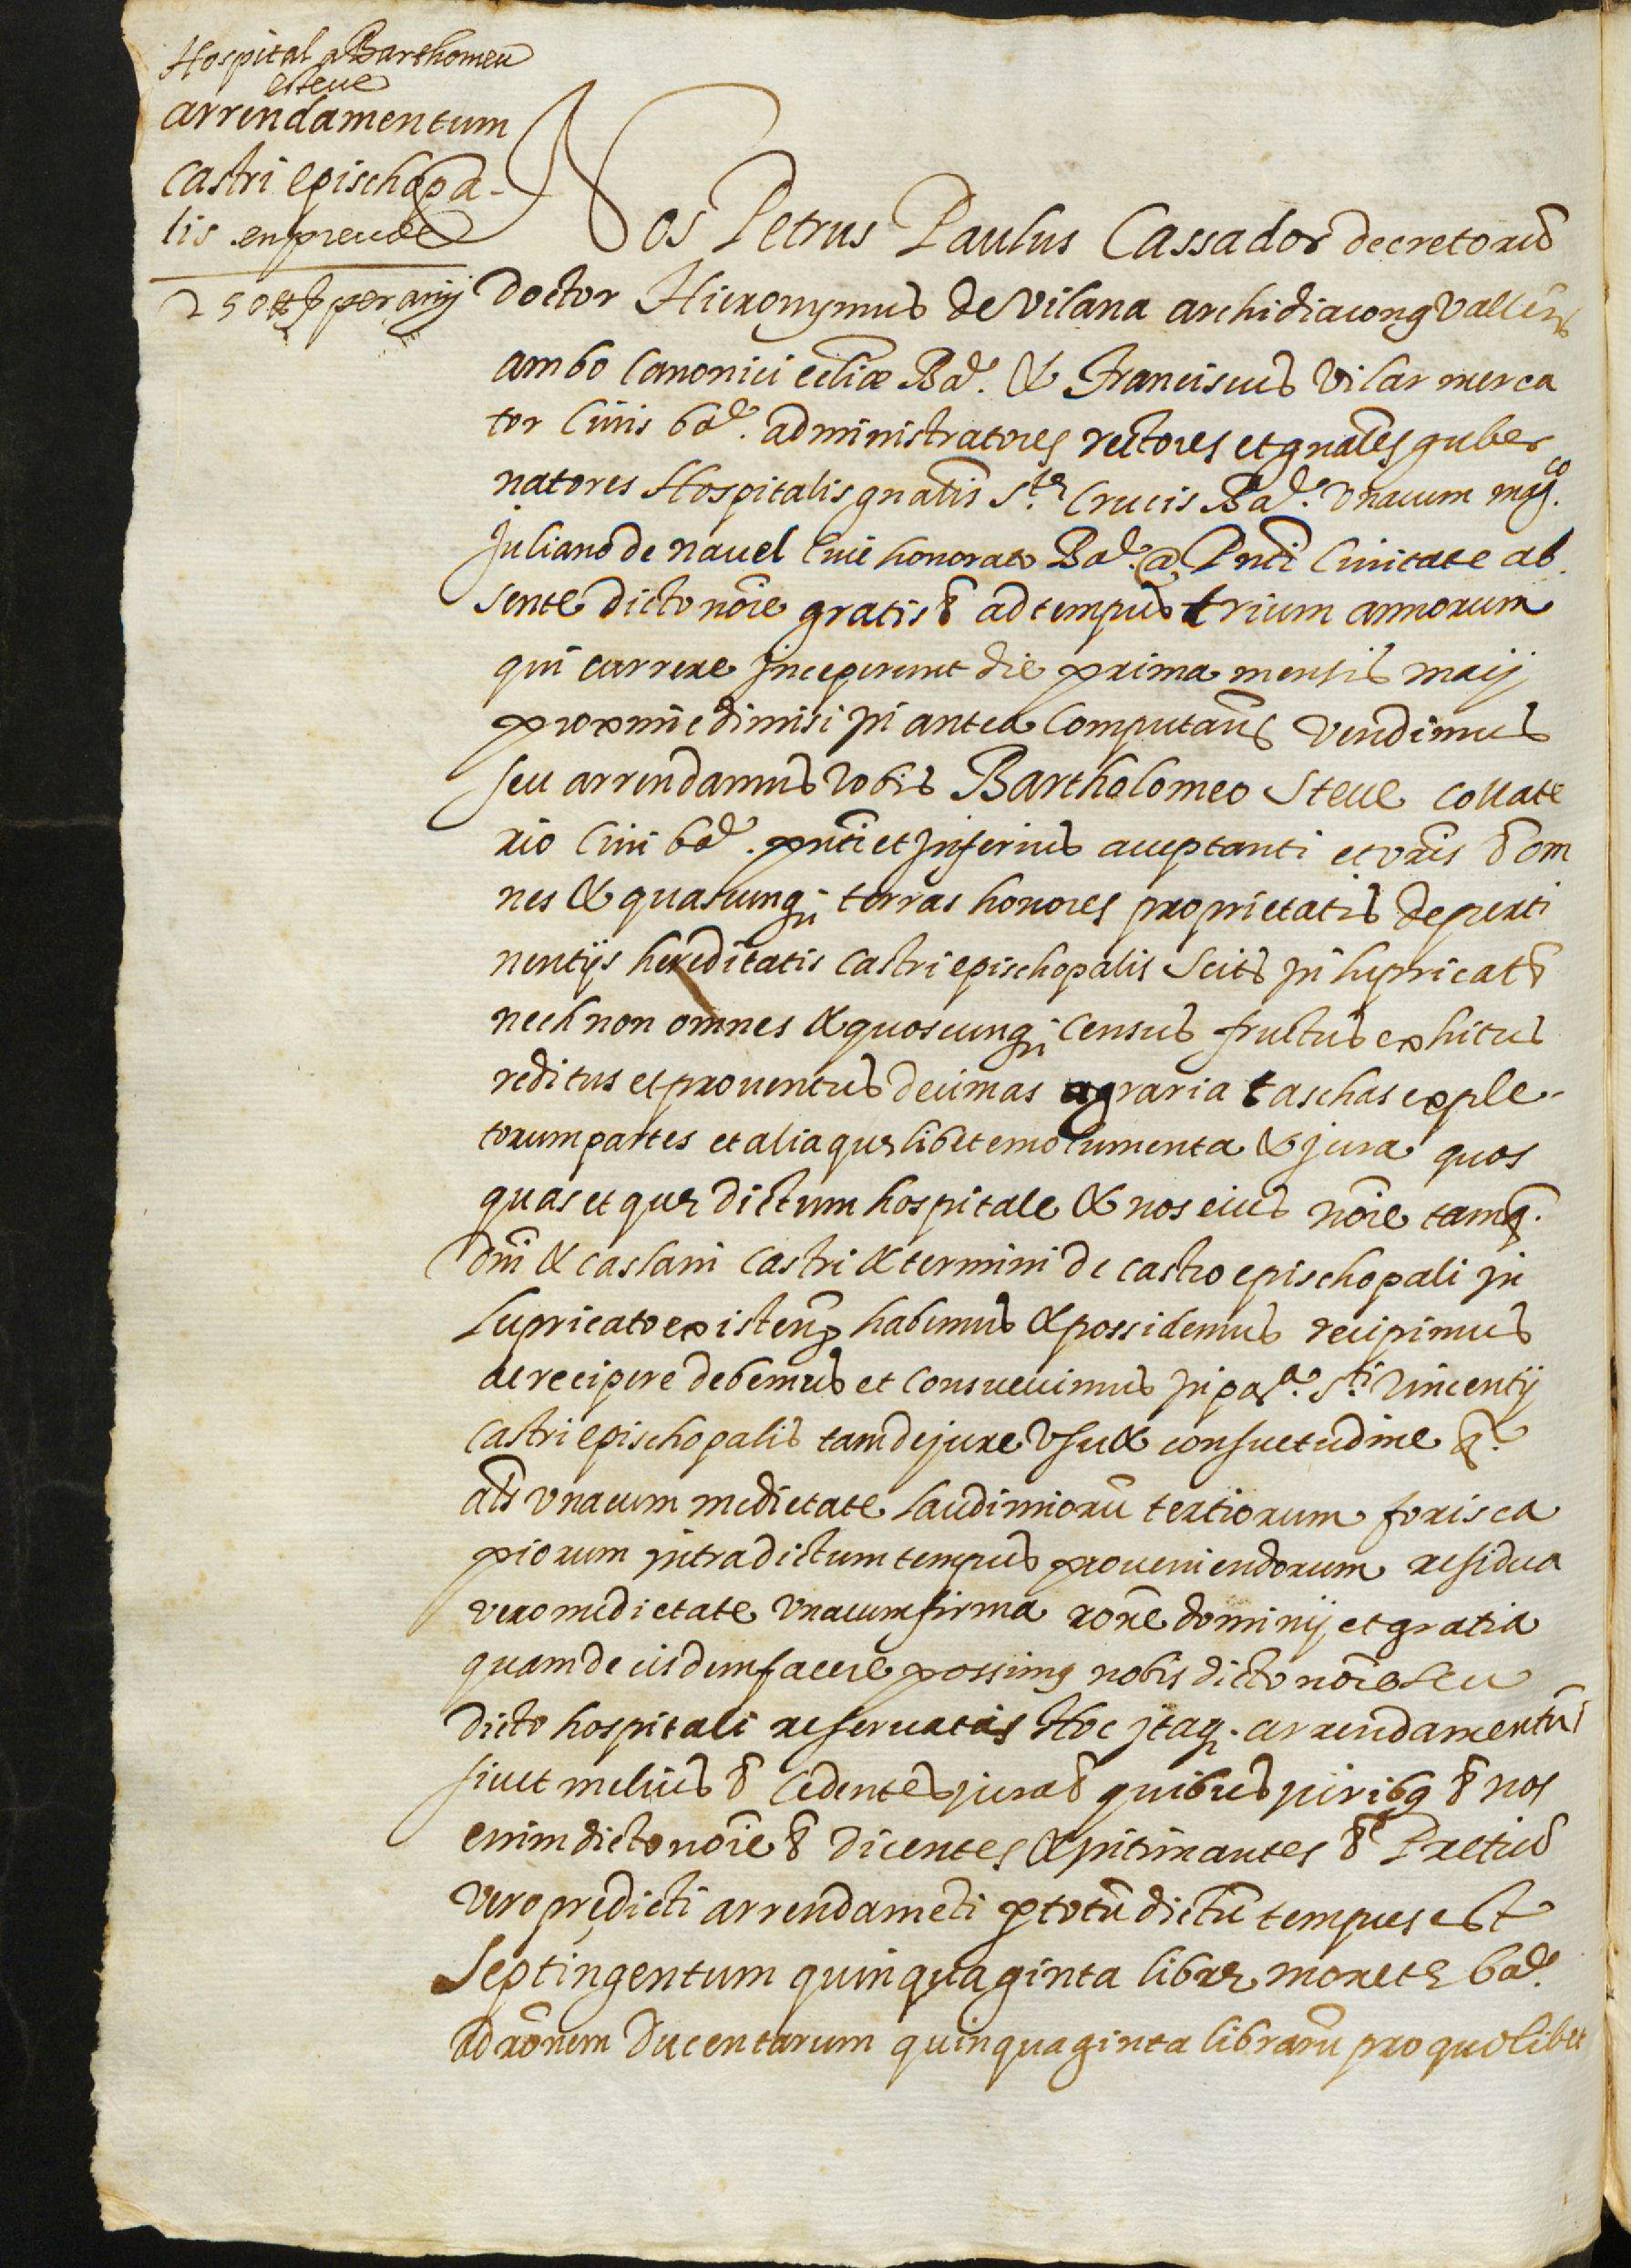 Hospital a Barthomeu
esteue
arrendamentum
castri epischopa-
lis en preu de
250 ll per any
Nos Petrus Paulus Cassador decretorũ
doctor Hieronymus de Vilana archidiaconus Vallen̄s
ambo Canonici eccliæ Bar̄. & Franciscus Vilar merca
tor Ciuis bar̄. administratores rectores et gnāles guber
natores Hospitalis gnālis S.te Crucis Bar̄. Vnacum mag.co
Juliano de nauel Ciue honorato Bar̄. a pn̄ti Ciuitate ab
sente dicto nōie gratis & ad tempus trium annorum
qui currere Inceperunt die prima mensis maij
proxime dimisi in antea Computan̄s Vendimus
seu arrendamus vobis Bartholomeo Steue Collate
rio Ciui bar̄. pn̄ti et Inferius acceptanti et vr̄is & om
nes & quascunq̄ terras honores proprietatis de perti
nentijs hereditatis castri epischopalis Scitis in lupricat &
nech non omnes & quoscunq̄ Census fructus exhitus
reditus et prouentus decimas agraria taschas exple-
torum partes et alia quelibet emolumenta & jura quos
quas et que dictum hospitale & nos eius nōie tamq̄.
dn̄i & caslani castri & termini de castro epischopali in
Lupricato existen̄ habemus & possidemus recipimus
ac recipere debemus et Consueuimus in par.a S.ti Vincentij
castri epischopalis tam de jure Vsu & consuetudine q.
al̄s vnacum medietate Laudimiorũ tertiorum forisca
piorum intra dictum tempus proueniendorum residua
vero medietate vnacum firma rōne dominij et gratia
quam de eisdem facere possimus nobis dicto nōie seu
dicto hospitali reseruatis Hoc itaq. arrendamentũ
sicut melius & Cedentes jura & quibus juribus & nos
enim dicto nōie & dicentes & intimantes & Pretiũ
vero predicti arrendamẽti p totũ dictũ tempus est
Septingentum quinquaginta libre monete bar̄.
ad rōnem Ducentarum quinquaginta librarũ pro quolibet